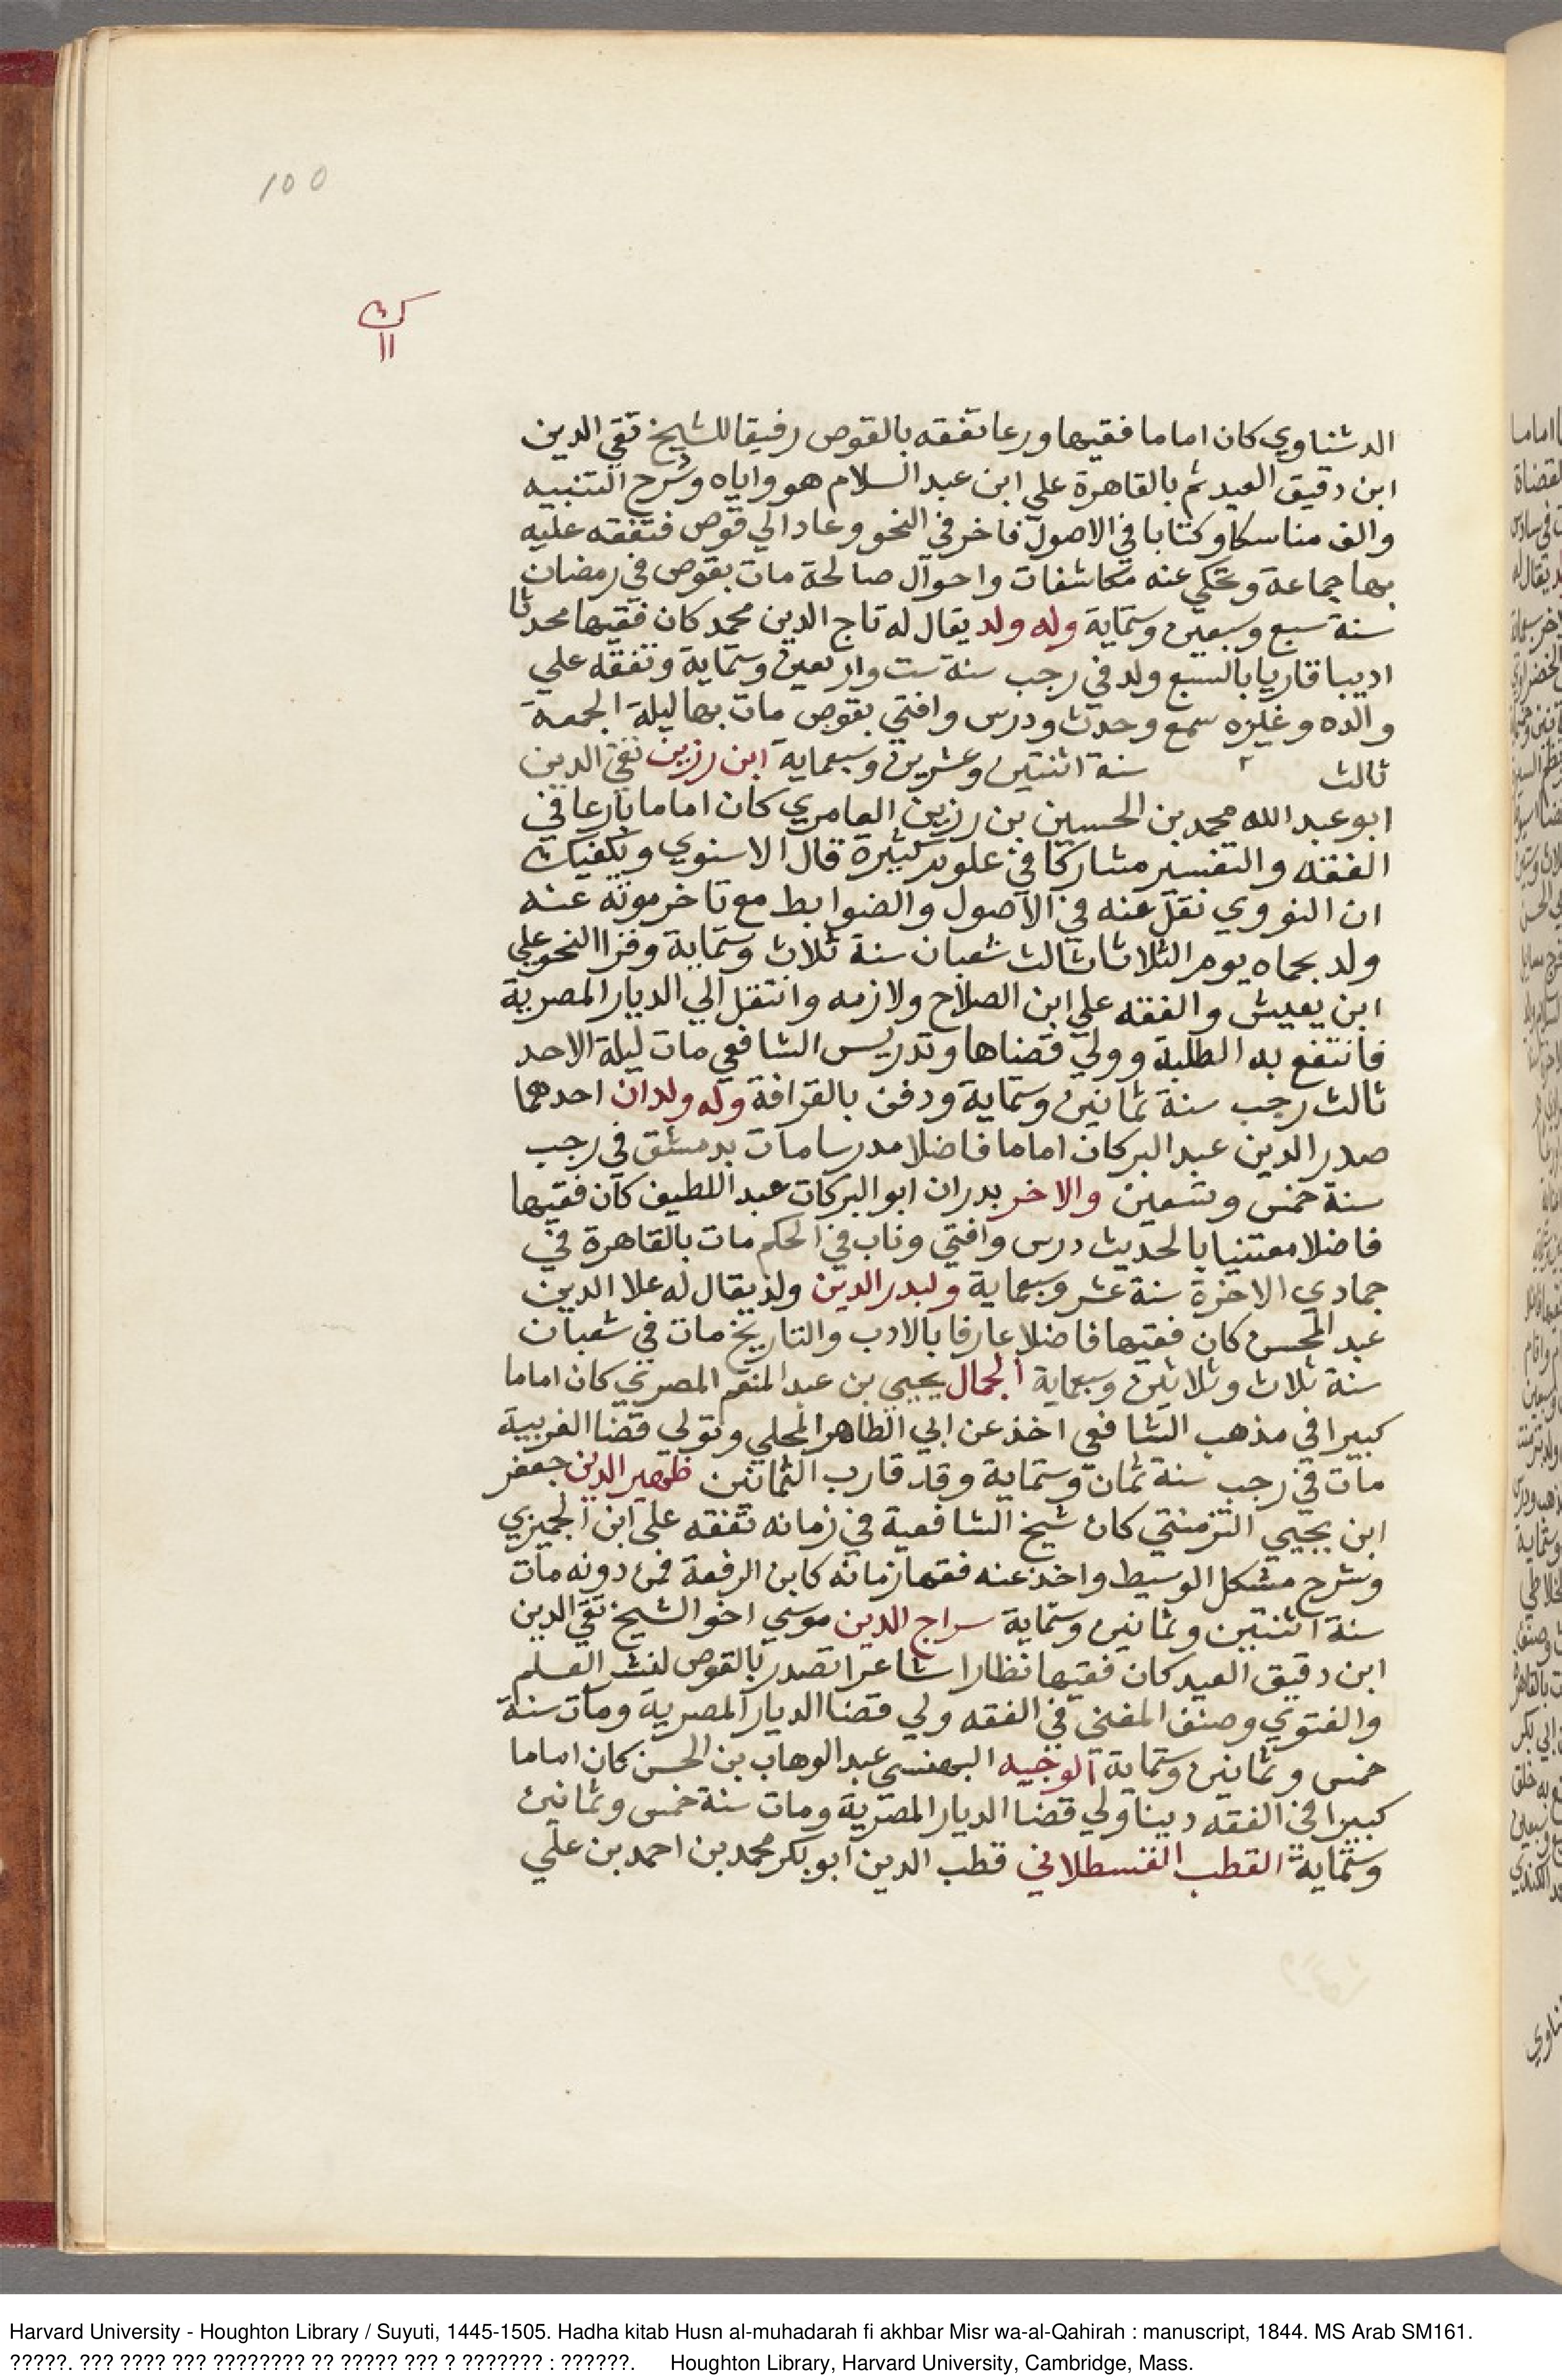 100
ك
11
الدشناوي كان اماما فقيها ورعا تفقه بالقوص رفيقا للشيخ تقي الدين
ابن دقيق العيد ثم بالقاهرة علي ابن عبد السلام هو واياه وشرح التنبيه
والف مناسكا وكتابا في الاصول فاخر في النحو وعاد الي قوص فتفقه عليه
بها جماعة وتحكي عنه مكاشفات واحوال صالحة مات بقوص في رمضان
سنة سبع وسبعين وستماية وله ولد يقال له تاج الدين محمد كان فقيها محدثا
اديبا قاريا بالسبع ولد في رجب سنة ست واربعين وستماية وتفقه علي
والده وغيره سمع وحدث ودرس وافتي بقوص مات بها ليلة الجمعة
ثالث سنة اثنتين وعشرين وسبعماية ابن رزين تقي الدين
ابو عبد الله محمد بن الحسين بن رزين العامري كان اماما بارعا في
الفقه والتفسير مشاركا في علوم كثيرة قال الاسنوي ويكفيك
ان النووي نقل عنه في الاصول والضوابط مع تاخر موته عنه
ولد بحماه يوم الثلاثا ثالث شعبان سنة ثلاث وستماية وقرا النحو علي
ابن يعيش والفقه علي ابن الصلاح ولازمه وانتقل الي الديار المصرية
فانتفع به الطلبة وولي قضاها وتدريس الشافعي مات ليلة الاحد
ثالث رجب سنة ثمانين وستماية ودفن بالقرافة وله ولدان احدهما
صدر الدين عبد البر كان اماما فاضلا مدرسا مات بدمشق في رجب
سنة خمس وتسعين والاخر بدران ابو البركات عبد اللطيف كان فقيها
فاضلا معتنيا بالحديث درس وافتي وناب في الحكم مات بالقاهرة في
جمادي الاخرة سنة عشر وسبعماية ولبدر الدين ولد يقال له علا الدين
عبد المحسن كان فقيها فاضلا عارفا بالادب والتاريخ مات في شعبان
سنة ثلاث وثلاثين وسبعماية الجمال يحيي بن عبد المنعم المصري كان اماما
كبيرا في مذهب الشافعي اخذ عن ابي الطاهر المحلي وتولي قضا الغربية
مات في رجب سنة ثمان وستماية وقد قارب الثمانين ظهير الدين جعفر
ابن يحيي التزمنتي كان شيخ الشافعية في زمانه تفقه علي ابن الجميزي
وشرح مشكل الوسيط واخذ عنه فقها زمانه كابن الرفعة فمن دونه مات
سنة اثنتين وثمانين وستماية سراج الدين موسي اخو الشيخ تقي الدين
ابن دقيق العيد كان فقيها نظارا شاعرا تصدر بالقوص لنشر العلم
والفتوي وصنف المغني في الفقه ولي قضا الديار المصرية ومات سنة
خمس وثمانين وستماية الوجيه البهنسي عبد الوهاب بن الحسن كان اماما
كبيرا في الفقه دينا ولي قضا الديار المصرية ومات سنة خمس وثمانين
وستماية القطب القسطلاني قطب الدين ابو بكر محمد بن احمد بن علي
Harvard University - Houghton Library / Suyuti, 1445-1505. Hadha kitab Husn al-muhadarah fi akhbar Misr wa-al-Qahirah : manuscript, 1844. MS Arab SM161.
?????. ??? ???? ??? ???????? ?? ????? ??? ? ??????? : ??????. Houghton Library, Harvard University, Cambridge, Mass.